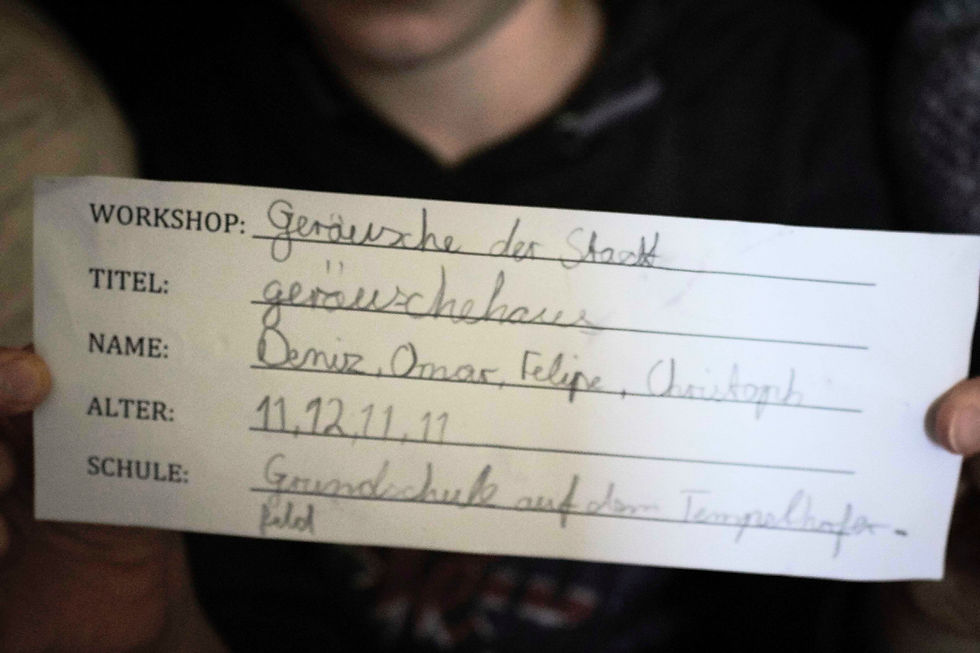 WORKSHOP: Geräusche der Stadt
TITEL: geräuschehaus
NAME: Deniz, Omar, Felipe, Christoph
ALTER: 11, 12, 11, 11
SCHULE: Grundschule auf dem Tempelhofer-
feld